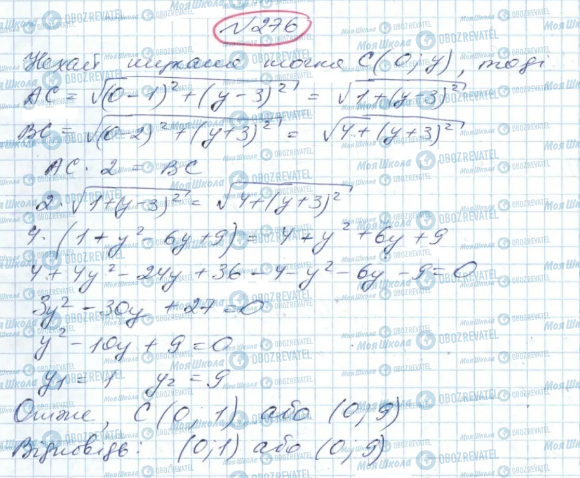 №276
Нехай шукана точка C(0; y), тоді
AC = √(0-1)² + (y-3)² = √1+(y-3)²
BC = √(0-2)² + (y+3)² = √4+(y+3)²
AC · 2 = BC
2·√1+(y-3)² = √4+(y+3)²
4·(1+y²-6y+9) = 4+y²+6y+9
4+4y²-24y+36-4-y²-6y-9=0
3y²-30y+27=0
y²-10y+9=0
y₁=1 y₂=9
Отже, C(0;1) або (0;9)
Відповідь: (0;1) або (0;9)